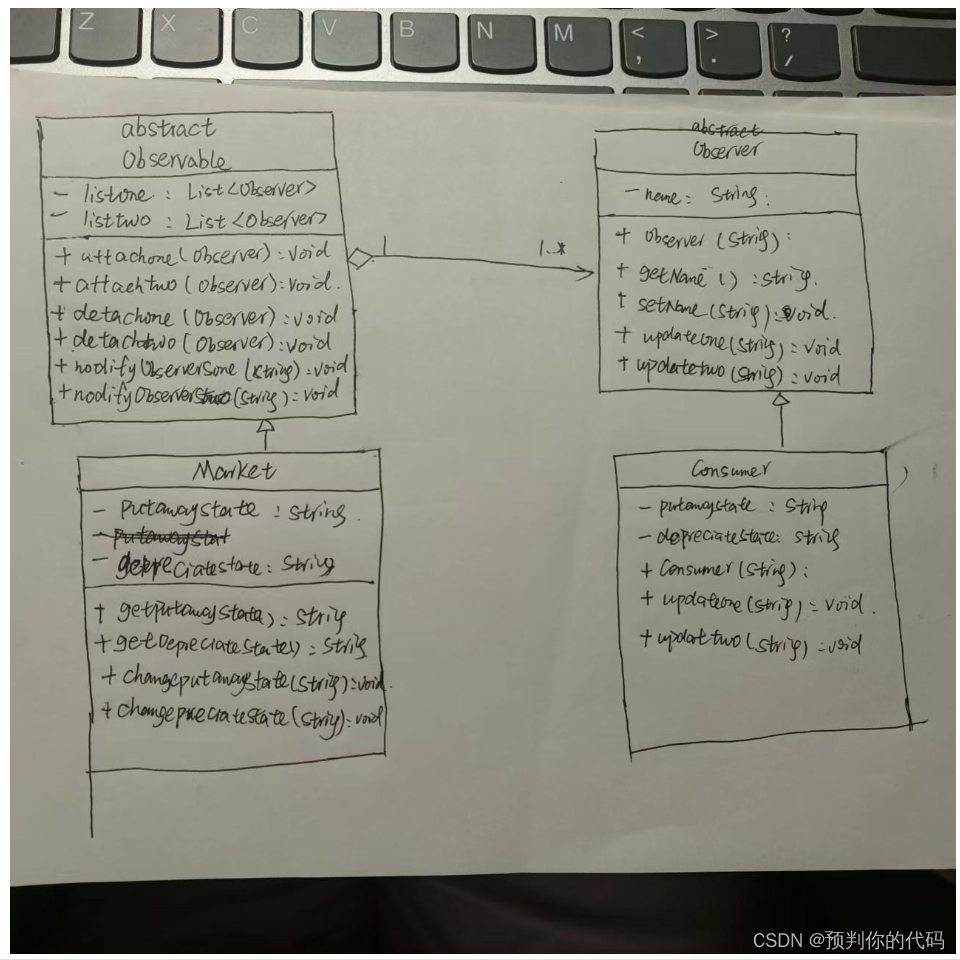 Z X C V B N M < , > . ? /
abstract
Observable
- listone : List<Observer>
- listtwo : List<Observer>
+ attachone(Observer):void
+ attachtwo(Observer):void.
+ detachone(Observer):void
+ detachtwo(Observer):void
+ nodifyObserversone(String):void
+ nodifyObserverstwo(String):void
1
1..*
abstract
Observer
- name: String;
+ Observer(String):
+ getName():String.
+ setName(String):void.
+ updateone(String):void
+ updatetwo(String):void
Market
- Putawaystate : String.
- putawaystat
- depreciatestate: String
+ getputawaystate():String
+ getDepreciatestate():String
+ changeputawaystate(String):void.
+ changepreciatestate(String):void
Consumer
- putawaystate : String
- depreciatestate: String
+ Consumer(String):
+ updateone(String):void.
+ updattwo(String):void
CSDN @预判你的代码